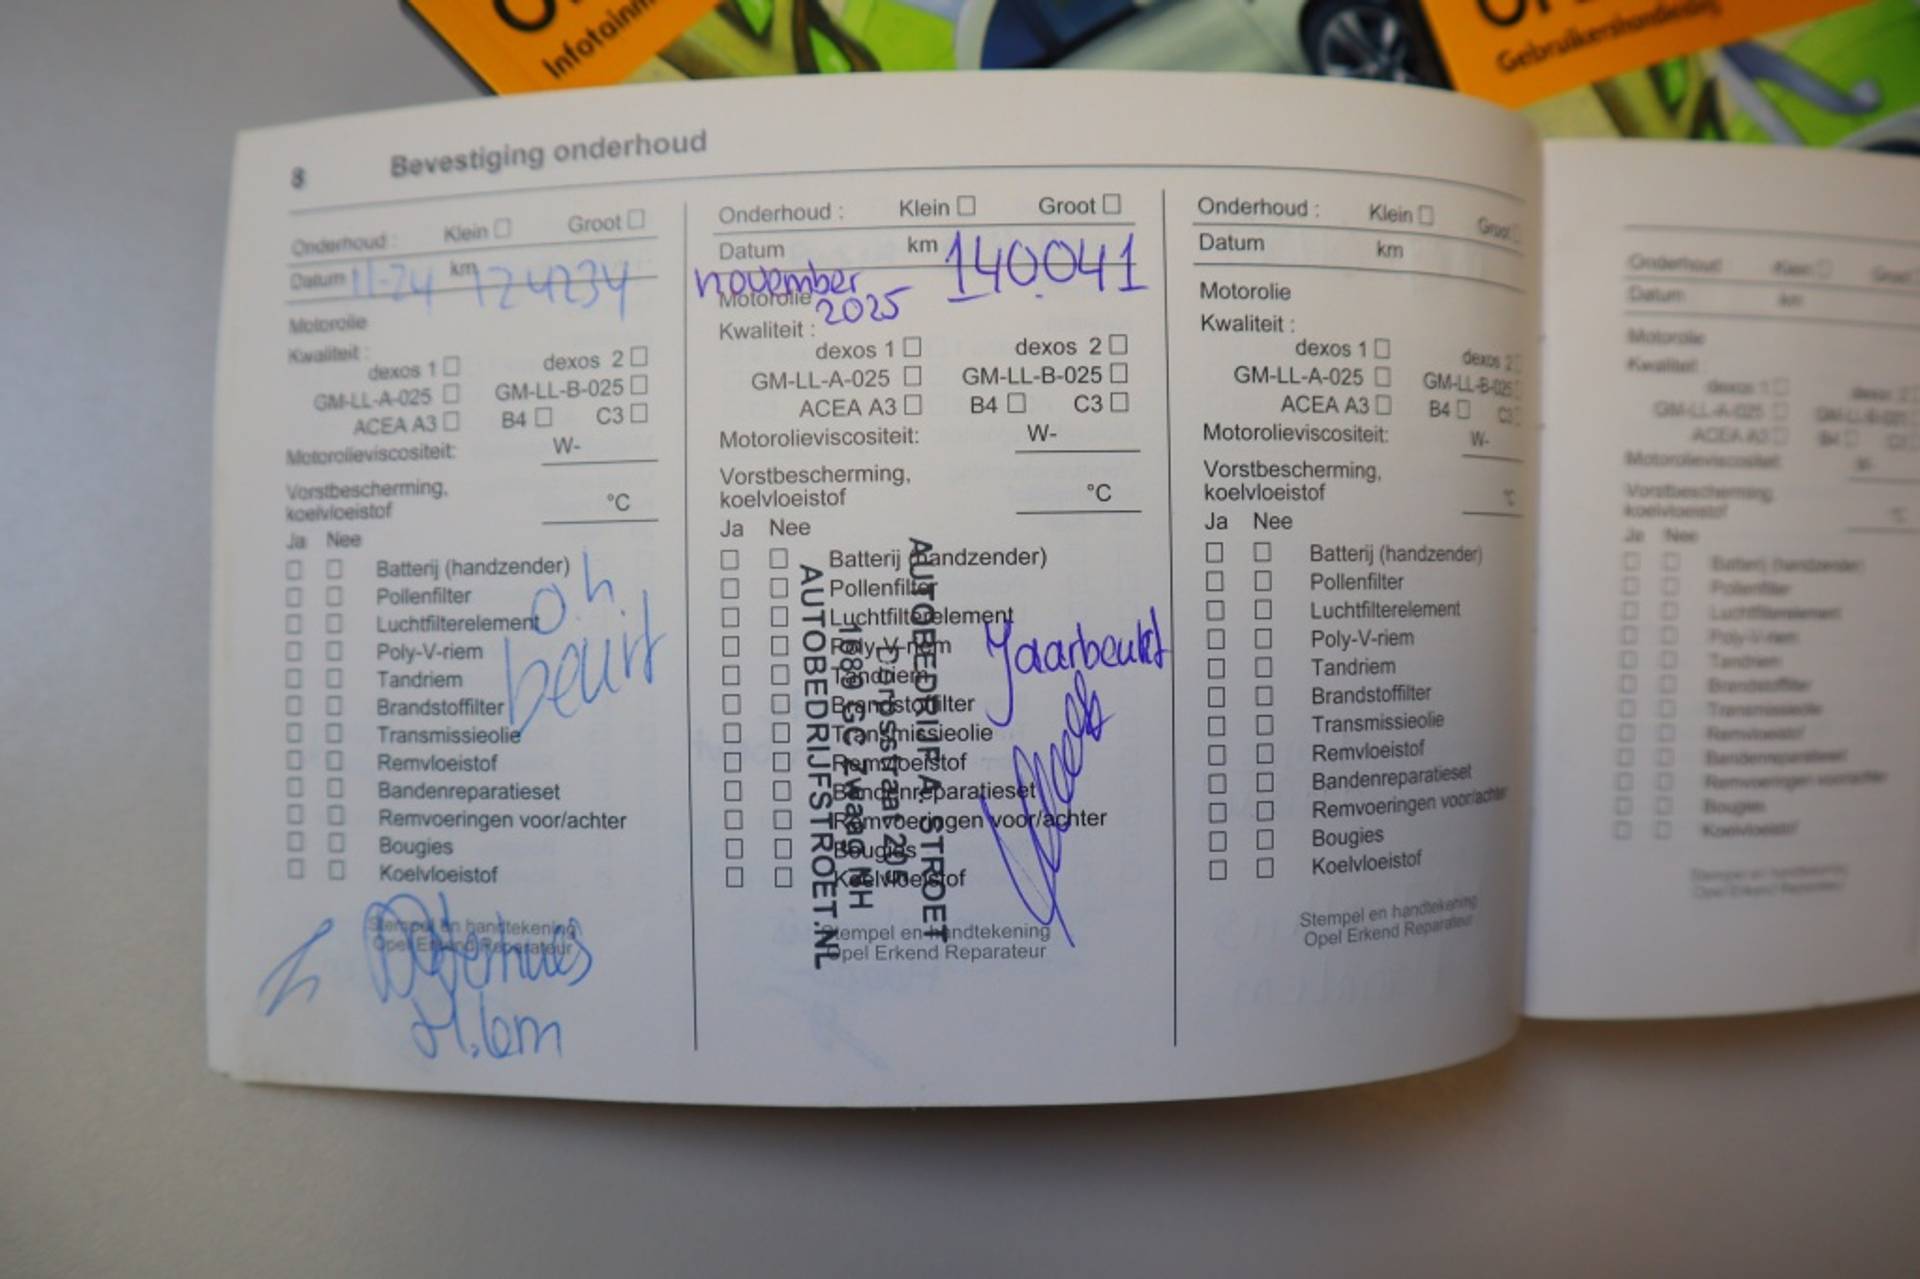 Infotainm
Gebruikershandleidig
8 Bevestiging onderhoud
Onderhoud : Klein Groot
Datum 11-24 km 124234
Motorolie
Kwaliteit :
dexos 1 dexos 2
GM-LL-A-025 GM-LL-B-025
ACEA A3 B4 C3
Motorolieviscositeit: W-
Vorstbescherming,
koelvloeistof °C
Ja Nee
Batterij (handzender)
Pollenfilter
Luchtfilterelement
Poly-V-riem
Tandriem
Brandstoffilter
Transmissieolie
Remvloeistof
Bandenreparatieset
Remvoeringen voor/achter
Bougies
Koelvloeistof
o.h.
beurt
Stempel en handtekening
Opel Erkend Reparateur
Onderhoud : Klein Groot
Datum km 140.041
november
2025
Motorolie
Kwaliteit :
dexos 1 dexos 2
GM-LL-A-025 GM-LL-B-025
ACEA A3 B4 C3
Motorolieviscositeit: W-
Vorstbescherming,
koelvloeistof °C
Ja Nee
Batterij (handzender)
Pollenfilter
Luchtfilterelement
Poly-V-riem
Tandriem
Brandstoffilter
Transmissieolie
Remvloeistof
Bandenreparatieset
Remvoeringen voor/achter
Bougies
Koelvloeistof
Jaarbeurt
AUTOBEDRIJF A. STROET
Dorpsstraat 205
1689 GC Zwaag NH
AUTOBEDRIJFSTROET.NL
Stempel en handtekening
Opel Erkend Reparateur
Onderhoud : Klein Groot
Datum km
Motorolie
Kwaliteit :
dexos 1 dexos 2
GM-LL-A-025 GM-LL-B-025
ACEA A3 B4 C3
Motorolieviscositeit: W-
Vorstbescherming,
koelvloeistof °C
Ja Nee
Batterij (handzender)
Pollenfilter
Luchtfilterelement
Poly-V-riem
Tandriem
Brandstoffilter
Transmissieolie
Remvloeistof
Bandenreparatieset
Remvoeringen voor/achter
Bougies
Koelvloeistof
Stempel en handtekening
Opel Erkend Reparateur
Onderhoud Klein
Datum km
Motorolie
Kwaliteit
Motorolieviscositeit
Vorstbescherming
koelvloeistof
Ja Nee
Batterij (handzender)
Pollenfilter
Luchtfilterelement
Poly-V-riem
Tandriem
Brandstoffilter
Transmissieolie
Remvloeistof
Bandenreparatieset
Remvoeringen voor/achter
Bougies
Koelvloeistof